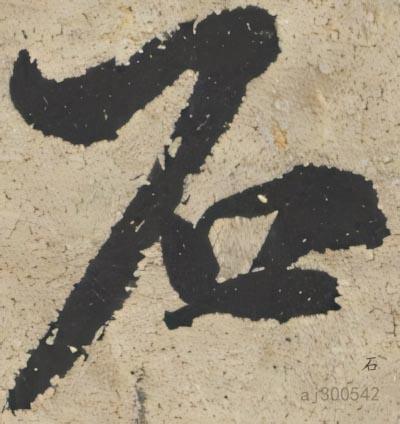 石
石
aj300542